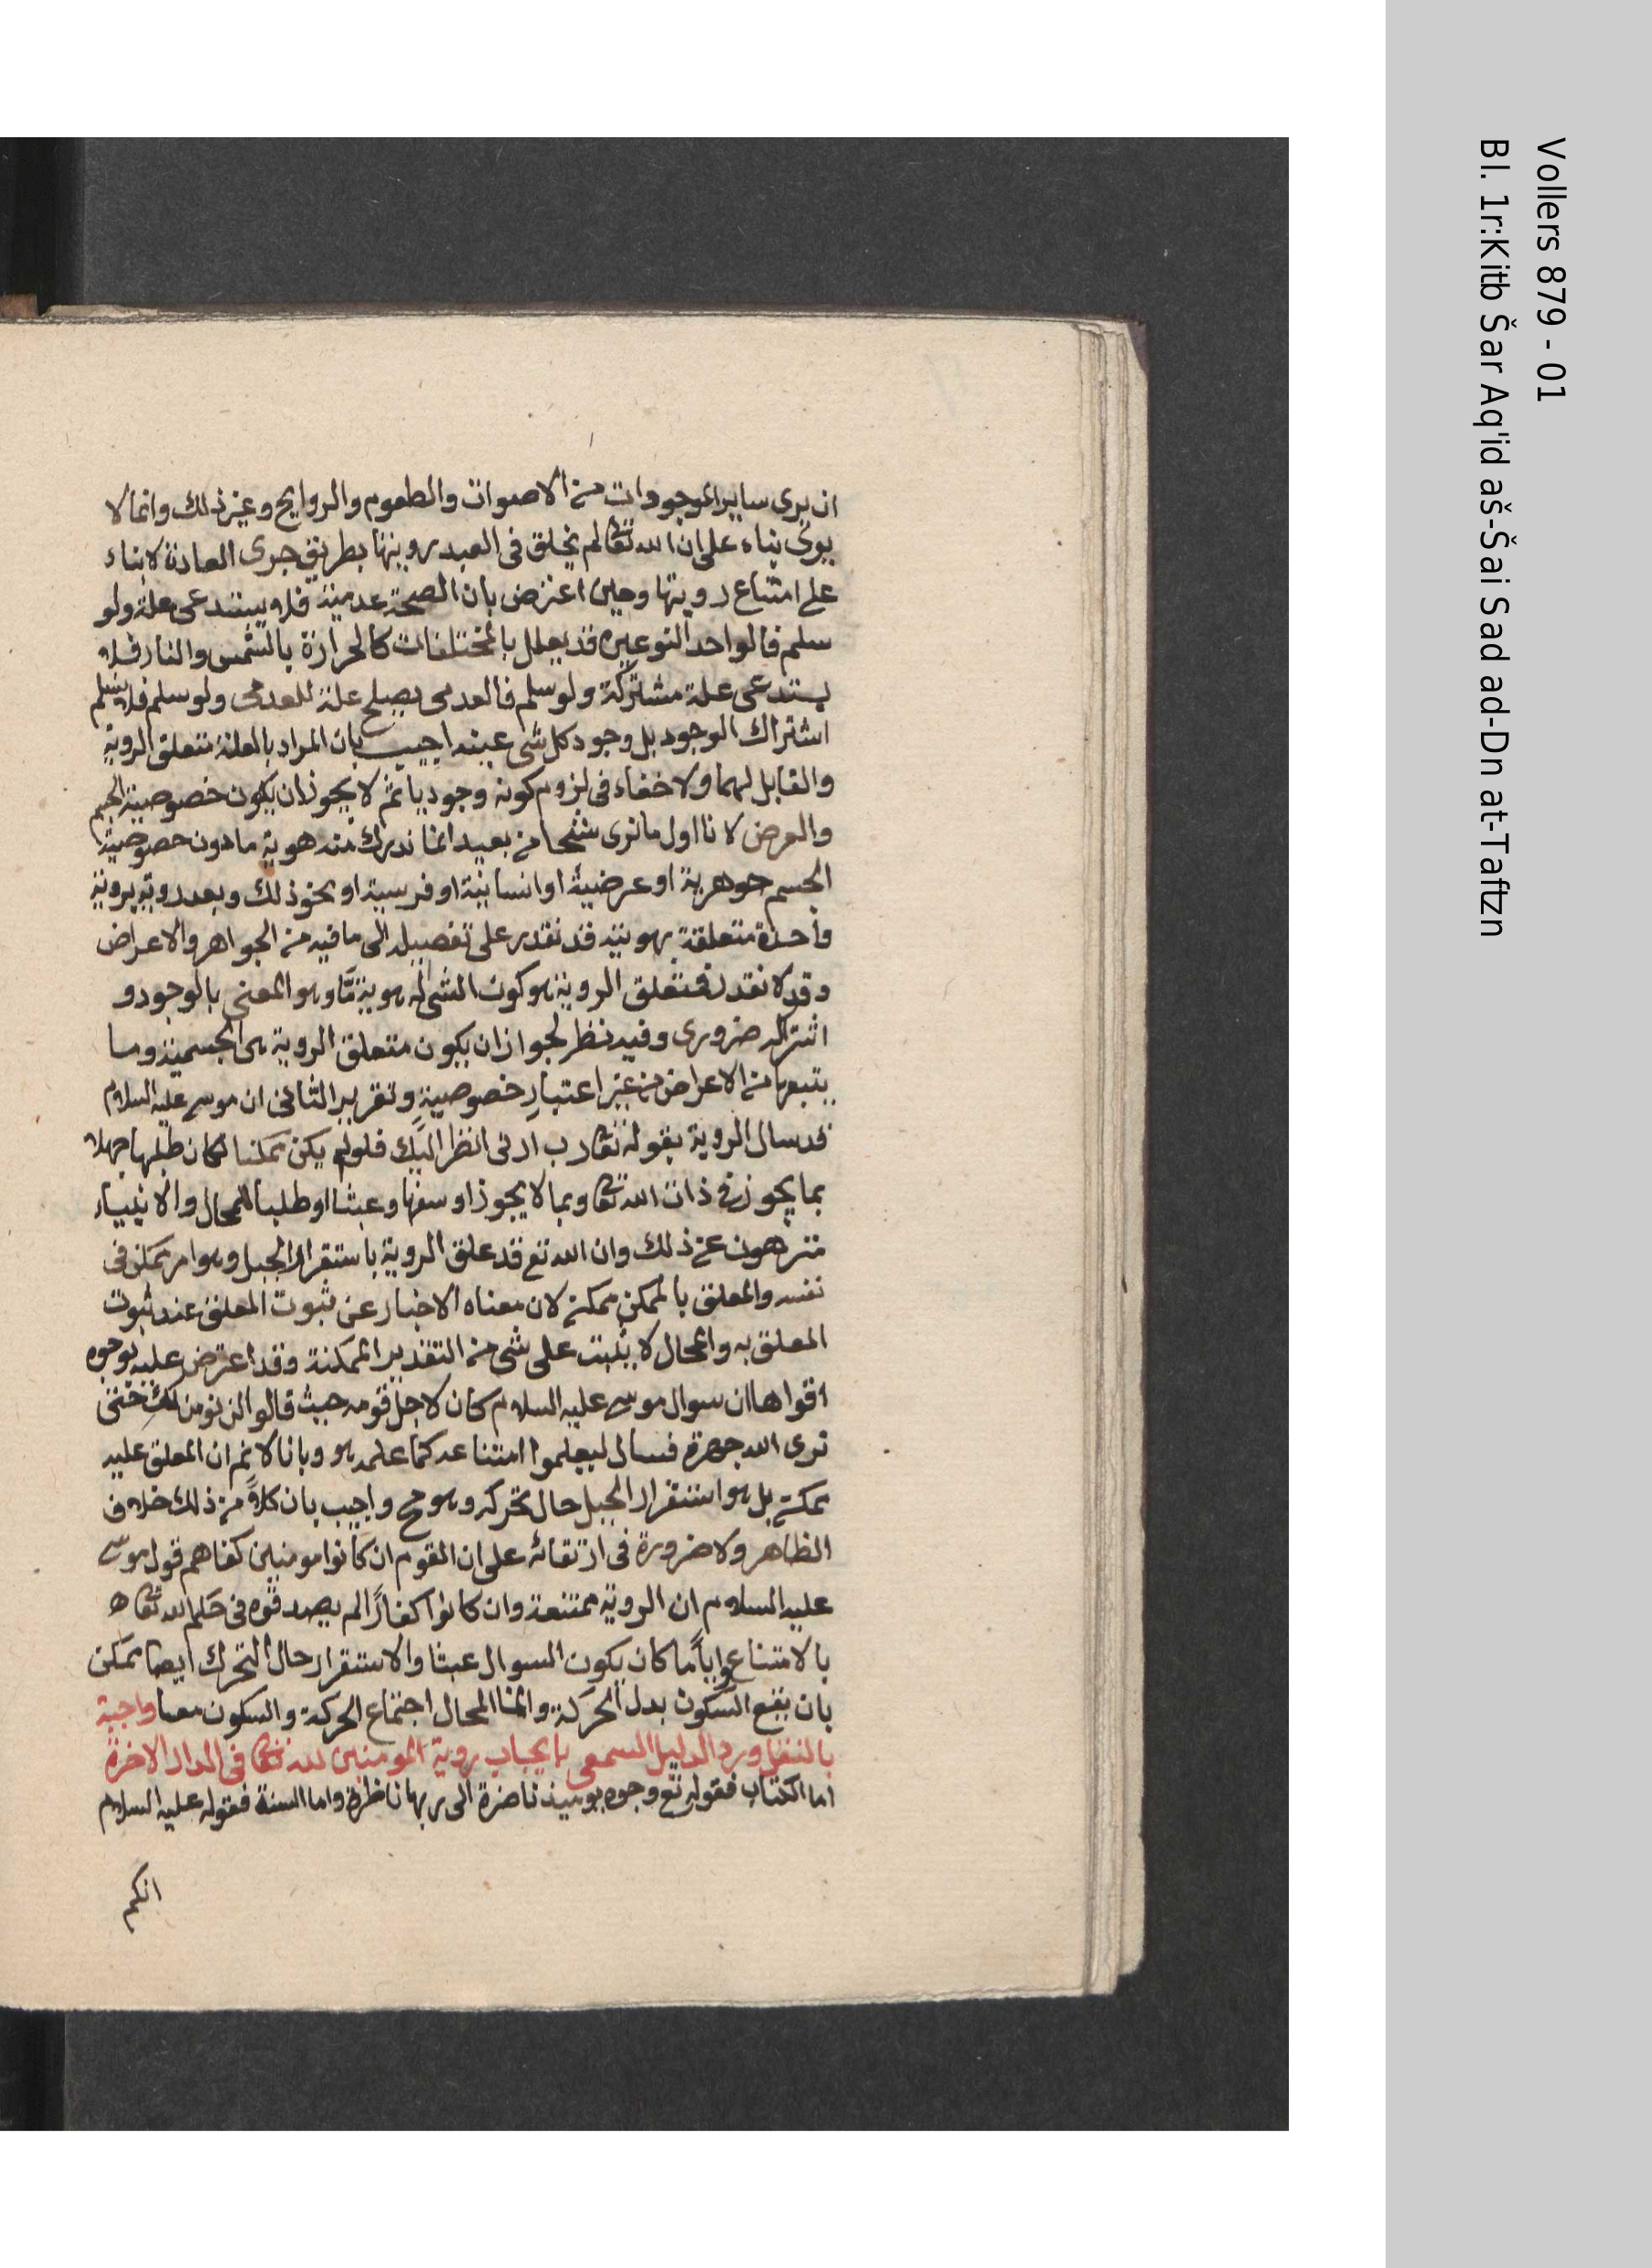 ان يرى ساير الموجودات من الاصوات والطعوم والروايح وغير ذلك وانما لا
يرى بناء على ان الله تعالى لم يخلق في العبد رويتها بطريق جرى العادة لا بناء
على امتناع رويتها وحين اعترض بان الصحة عدمية فلا يستدعى علة ولو
سلم فالواحد النوعى قد يعلل بالمختلفات كالحرارة بالشمس والنار فلا
يستدعى علة مشتركة ولو سلم فالعدمى يصلح علة للعدمى ولو سلم فلا نسلم
اشتراك الوجود بل وجود كل شى عينه اجيب بان المراد بالعلة متعلق الروية
والقابل لهما ولا خفاء فى لزوم كونه وجوديا ثم لا يجوز ان يكون خصوصية الجسم
والعرض لانا اول ما نرى شبحا من بعيد انما ندرك منه هوية ما دون خصوصية
الجسم جوهرية او عرضية او انسانية او فرسية او نحو ذلك وبعد رويته بروية
واحدة متعلقة بهويته قد نقدر على تفصيله الى ما فيه من الجواهر والاعراض
وقد لا نقدر فمتعلق الروية هو كون الشى له هوية مّا وهو المعنى بالوجود و
اشتراكه ضرورى وفيه نظر لجواز ان يكون متعلق الروية هى الجسمية وما
يتبعها من الاعراض من غير اعتبار خصوصية وتقرير الثانى ان موسى عليه السلام
قد سال الروية بقوله تعالى رب ارنى انظر اليك فلو لم يكن ممكنا لكان طلبها جهلا
بما يجوز فى ذات الله تعالى وبما لا يجوز او سفها وعبثا او طلبا للمحال والانبياء
منزهون عن ذلك وان الله تع قد علق الروية باستقرار الجبل وهو امر ممكن فى
نفسه والمعلق بالممكن ممكن لان معناه الاخبار عن ثبوت المعلق عند ثبوت
المعلق به والمحال لا يثبت على شى من التقدير الممكنة وقد اعترض عليه بوجوه
اقواها ان سوال موسى عليه السلام كان لاجل قومه حيث قالوا لن نومن لك حتى
نرى الله جهرة فسال ليعلموا امتناعه كما علمه هو وبانا لا نم ان المعلق عليه
ممكن بل هو استقرار الجبل حال تحركه وهو مح واجيب بان كلا من ذلك خلاف
الظاهر ولا ضرورة فى ارتقائه على ان القوم ان كانوا مومنين كفاهم قول موسى
عليه السلام ان الروية ممتنعة وان كانوا كفارًا لم يصدقوه فى حكم الله تعالى ه
بالامتناع وايًّاما كان يكون السوال عبثا والاستقرار حال التحرك ايضا ممكن
بان يقع السكون بدل الحركة وانما المحال اجتماع الحركة والسكون معا واجبة
بالنقل ورد الدليل السمعى بايجاب روية المومنين لله تعالى فى الدار الاخرة
اما الكتاب فقوله تع وجوه يوميذ ناضرة الى ربها ناظرة واما السنة فقوله عليه السلام
انكم
Vollers 879 - 01
Bl. 1r:Kitb Šar Aq'id aš-Šai Sad ad-Dn at-Taftzn